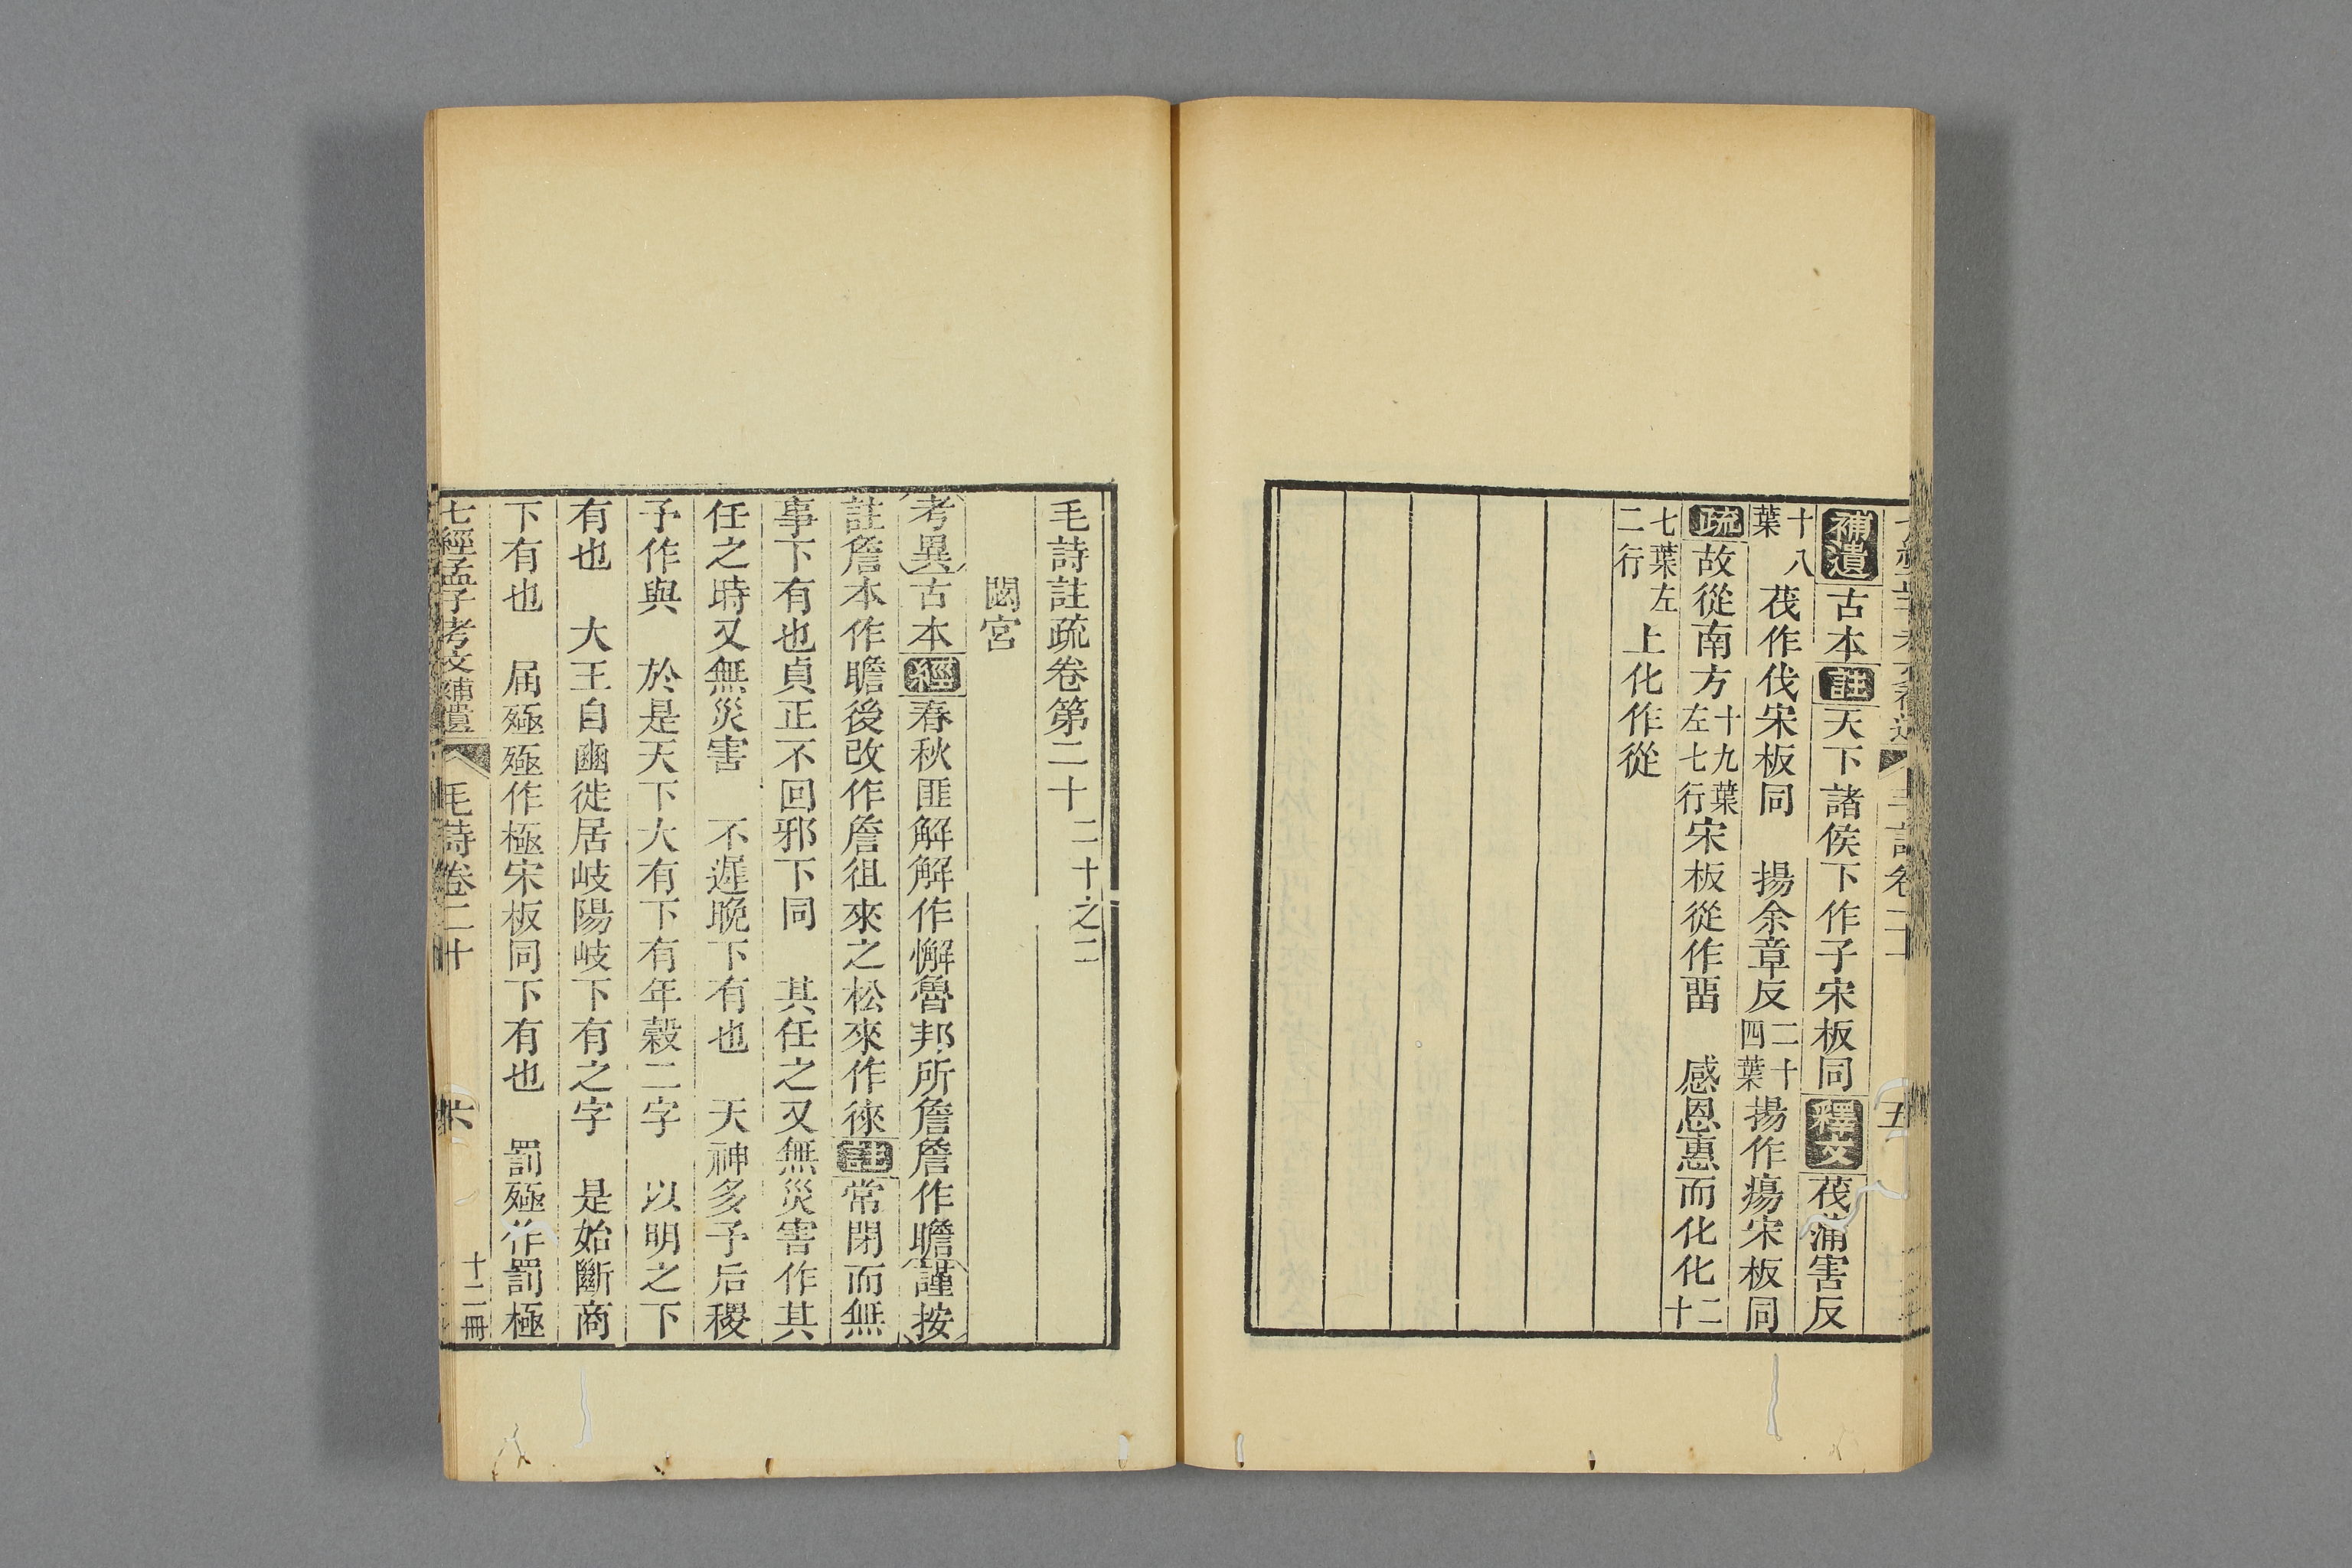 補遺古本註天下諸侯下作子宋板同釋文茷蒲害反
十八葉茷作伐宋板同　揚余章反二十四葉揚作瘍宋板同
疏故從南方十九葉左七行宋板從作畱　感恩惠而化化二十
七葉左二行上化作從
毛詩註疏卷第二十　二十之二
閟宮
考異古本經春秋匪解解作懈魯邦所詹詹作瞻謹按
註詹本作瞻後改作詹徂來之松來作徠註常閉而無
事下有也貞正不回邪下同　其任之又無災害作其
任之時又無災害　不遲晚下有也　天神多予后稷
予作與　於是天下大有下有年穀二字　以明之下
有也　大王自豳徙居岐陽岐下有之字　是始斷商
下有也　届殛殛作極宋板同下有也　罰殛作罰極
七經孟子考文補遺　毛詩卷二十　六　十二冊